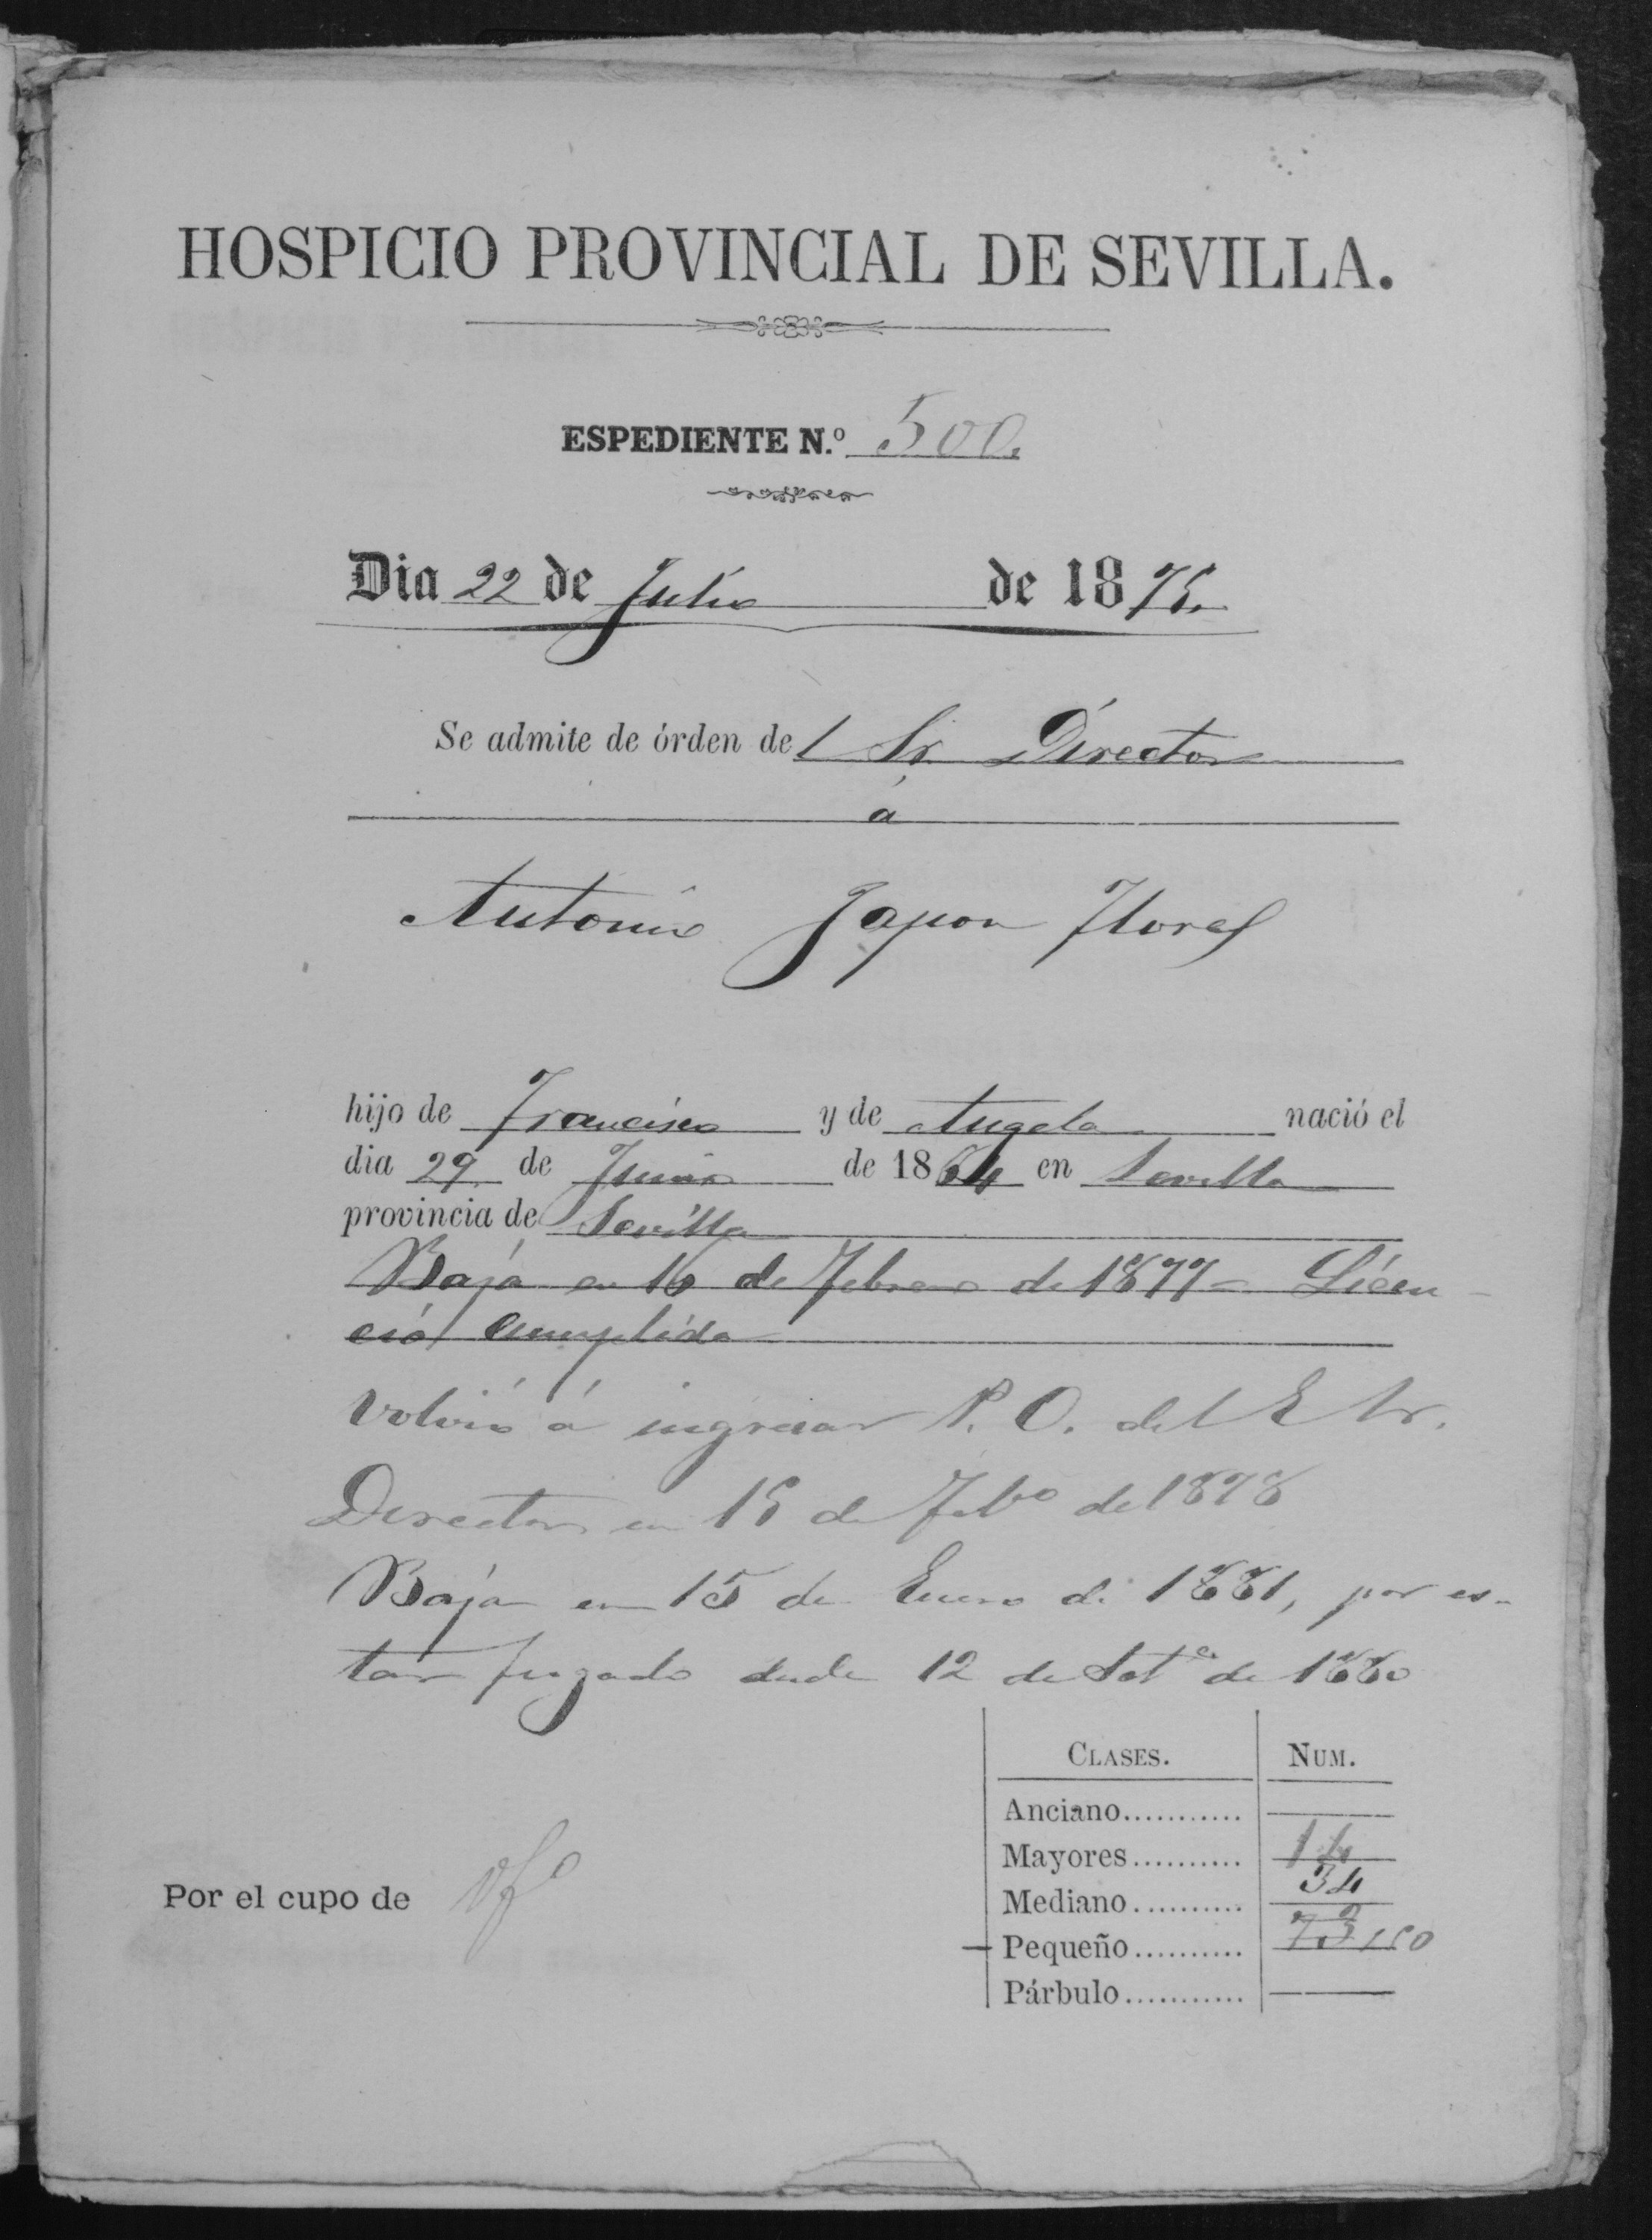 HOSPICIO PROVINCIAL DE SEVILLA.
ESPEDIENTE N.º 500.
Dia 22 de Julio de 1875.
Se admite de órden del Sr. Director
á
Antonio Japon Flores
hijo de Francisco y de Angela nació el
dia 29 de Junio de 1864 en Sevilla
provincia de Sevilla
Baja en 16 de Febrero de 1877 = Licen-
cia cumplida
Volvió á ingresar P. O. del E Sr.
Director en 15 de Febº de 1878
Baja en 15 de Enero de 1881, por es-
tar fugado desde 12 de Set.e de 1880
CLASES. NUM.
Anciano...........
Mayores.......... 14
Mediano.......... 34
Pequeño.......... 150
Párbulo...........
Por el cupo de